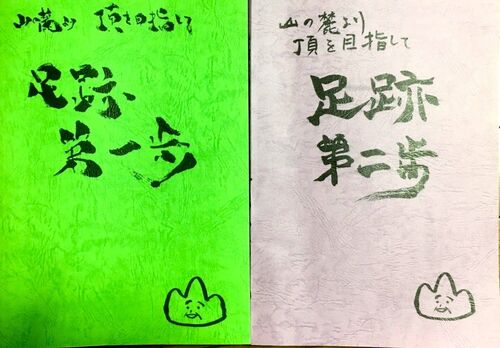 山麓より 頂を目指して
足跡
第一歩
山の麓より
頂を目指して
足跡
第二歩